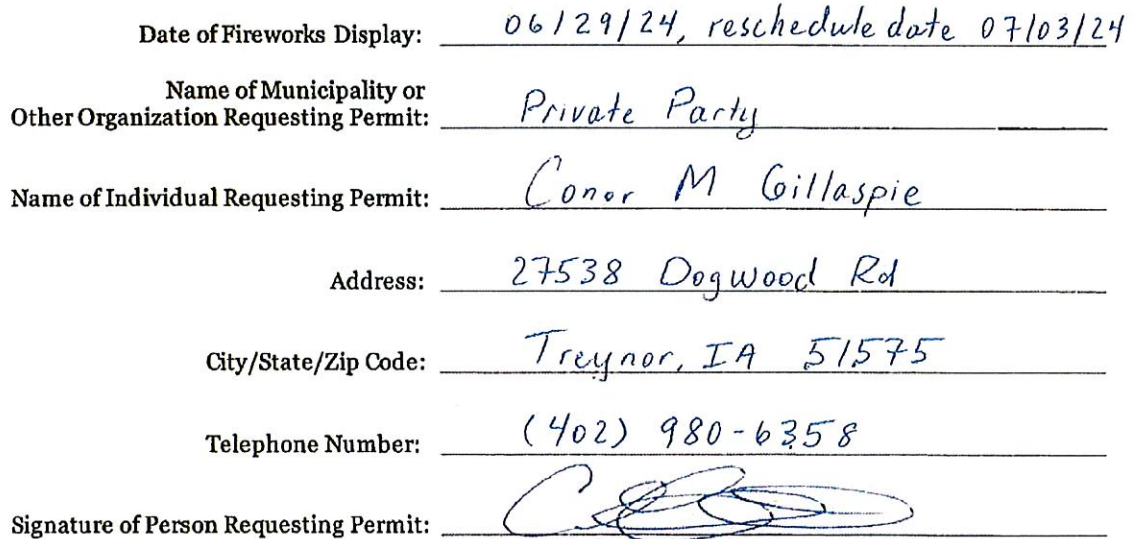 Date of Fireworks Display: 06/29/24, reschedule date 07/03/24
Name of Municipality or
Other Organization Requesting Permit: Private Party
Name of Individual Requesting Permit: Conor M Gillaspie
Address: 27538 Dogwood Rd
City/State/Zip Code: Treynor, IA 51575
Telephone Number: (402) 980-6358
Signature of Person Requesting Permit: